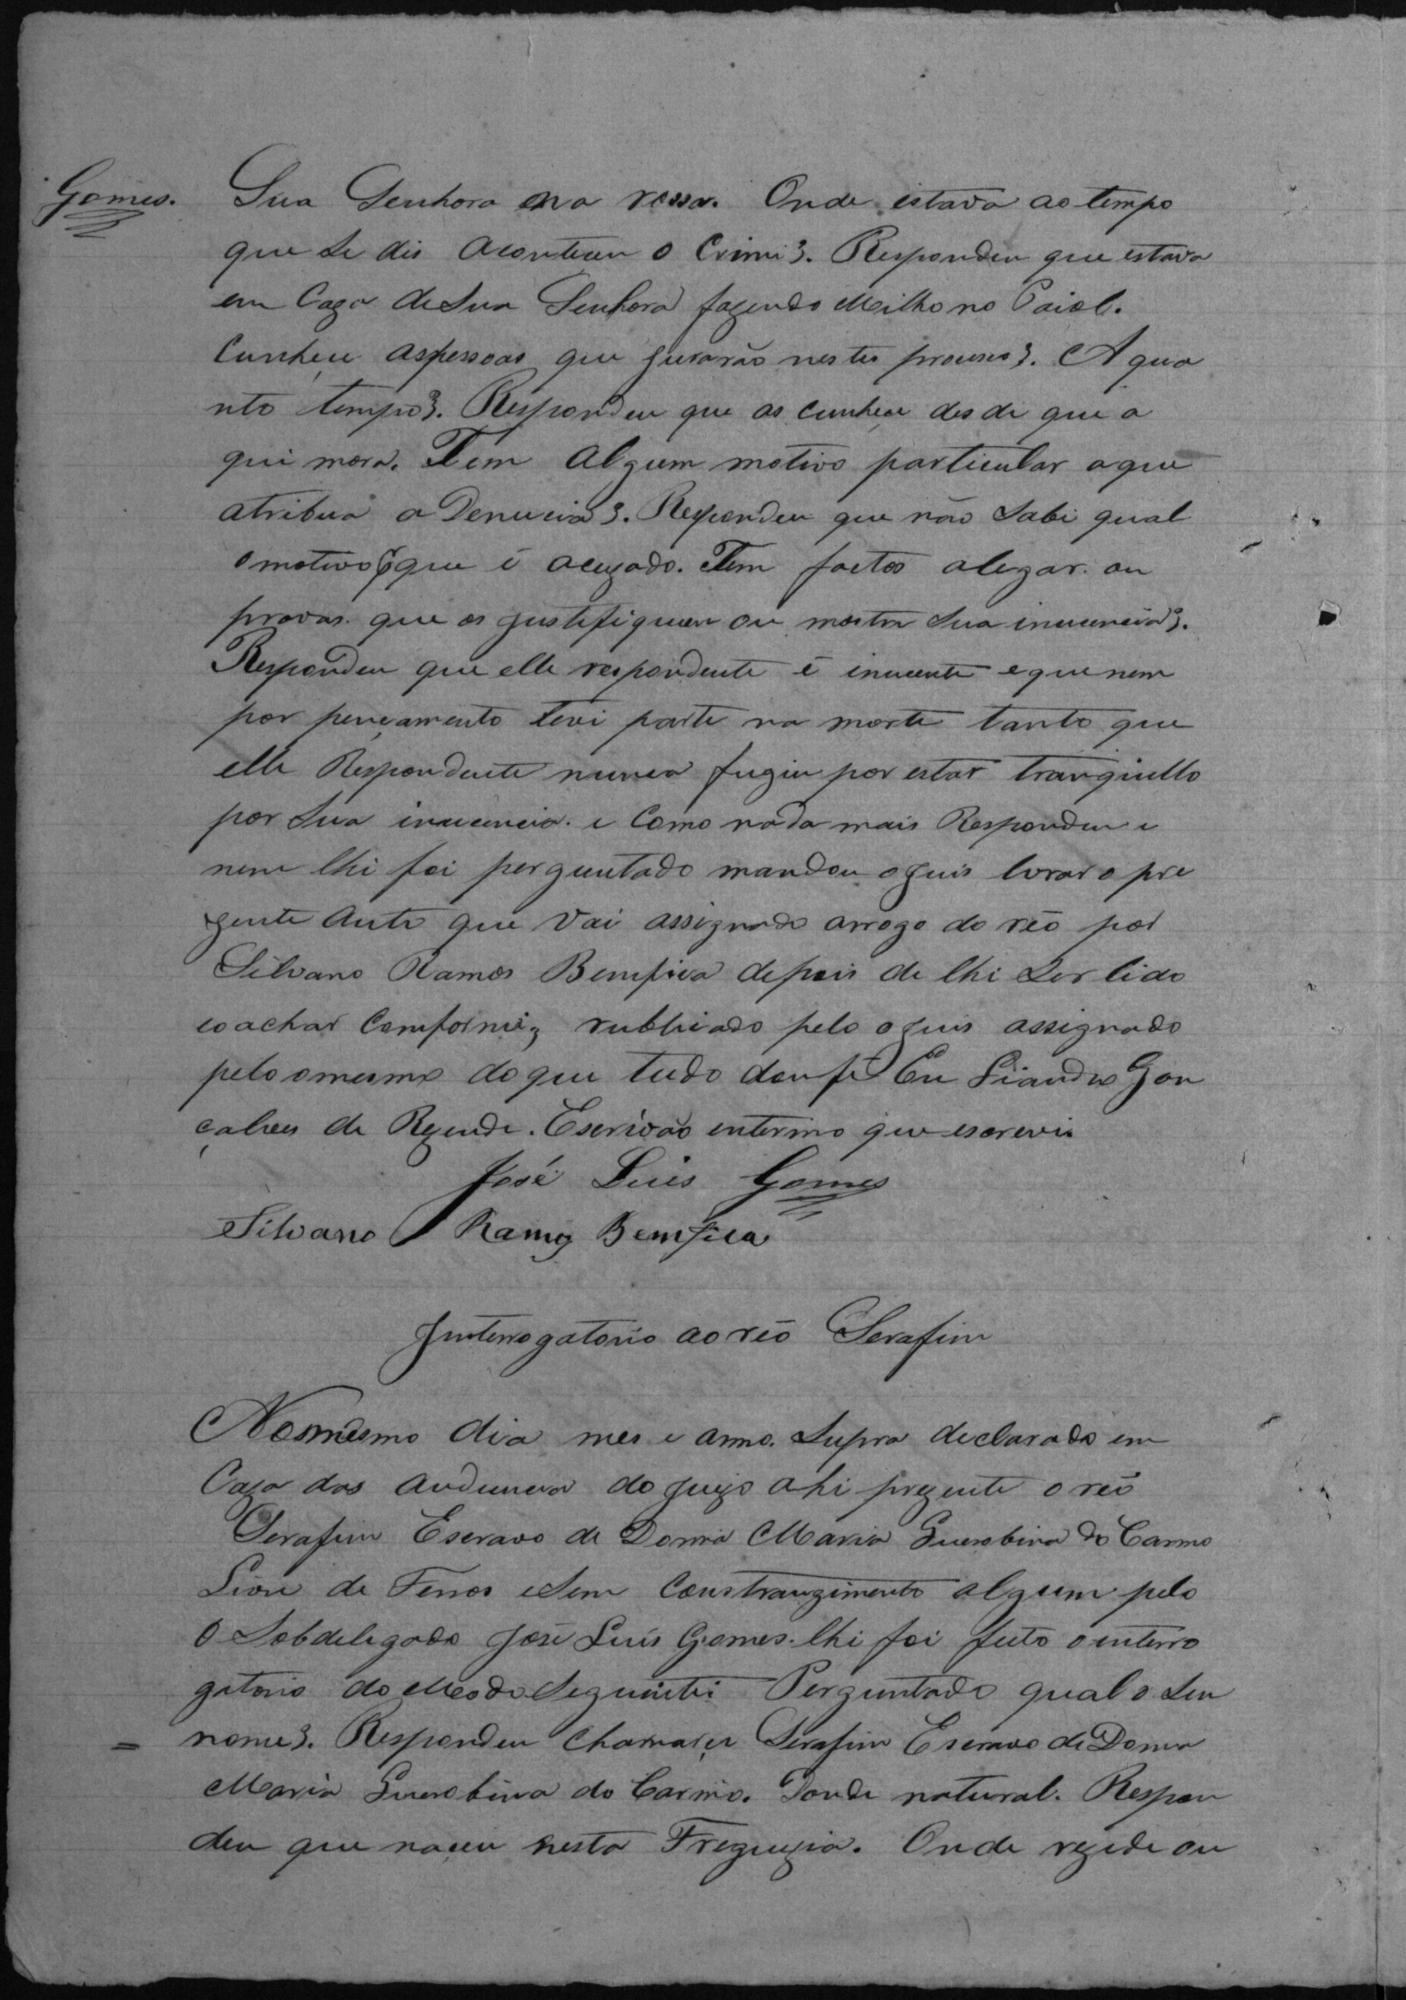 Gomes.
Sua Senhora na rossa. Onde estava ao tempo
que se dis aconteceu o Crime?. Respondeu que estava
em Caza de Sua Senhora fazendo Milho no Paiol.
Cunhece as pessoas que jurarão neste proceso?. A qua
nto tempo?. Respondeu que as cunhece desde que a
qui mora. Tem algum motivo particular aque
atribua a Denuncia?. Respondeu que não Sabe qual
o motivo que é acuzado. Tem factos alegar ou
provas que os justifiquem ou mostre Sua inucencia?.
Respondeu que elle respondente é inucente e que nem
por pençamento teve parte na morte tanto que
elle Respondente nunca fugiu por estar tranquillo
por Sua inucencia. e Como nada mais Respondeu e
nem lhi foi perguntado mandou o juis lavrar o pre
zente Auto que vai assignado arrogo do réo por
Silvano Ramos Bemfica depois de lhi Ser lido
eo achar Comforme, rubricado pelo o juis assignado
pelo o mesmo do que tudo dou fé Eu Liandro Gon
çalves de Rezende. Escrivão enterino que escrevi
José Luis Gomes
Silvano Ramos Bemfica
Jnterrogatorio ao réo Serafim
No mesmo dia mes e anno. Supra declarado em
Caza das audiencia do juizo ahi prezente o réo
Serafim Escravo de Donna Maria do Carmo
de e Sem Constrangimento algum pelo
O Sobdelegado José Luis Gomes. lhi foi feito o interro
gatorio do Modo Seguinte: Perguntado qual o Seu
= nome?. Respondeu Chamarçe Serafim Escravo de Donna
Maria do Carmo. Donde natural. Respon
deu que naceu nesta Freguezia. Onde rezide ou